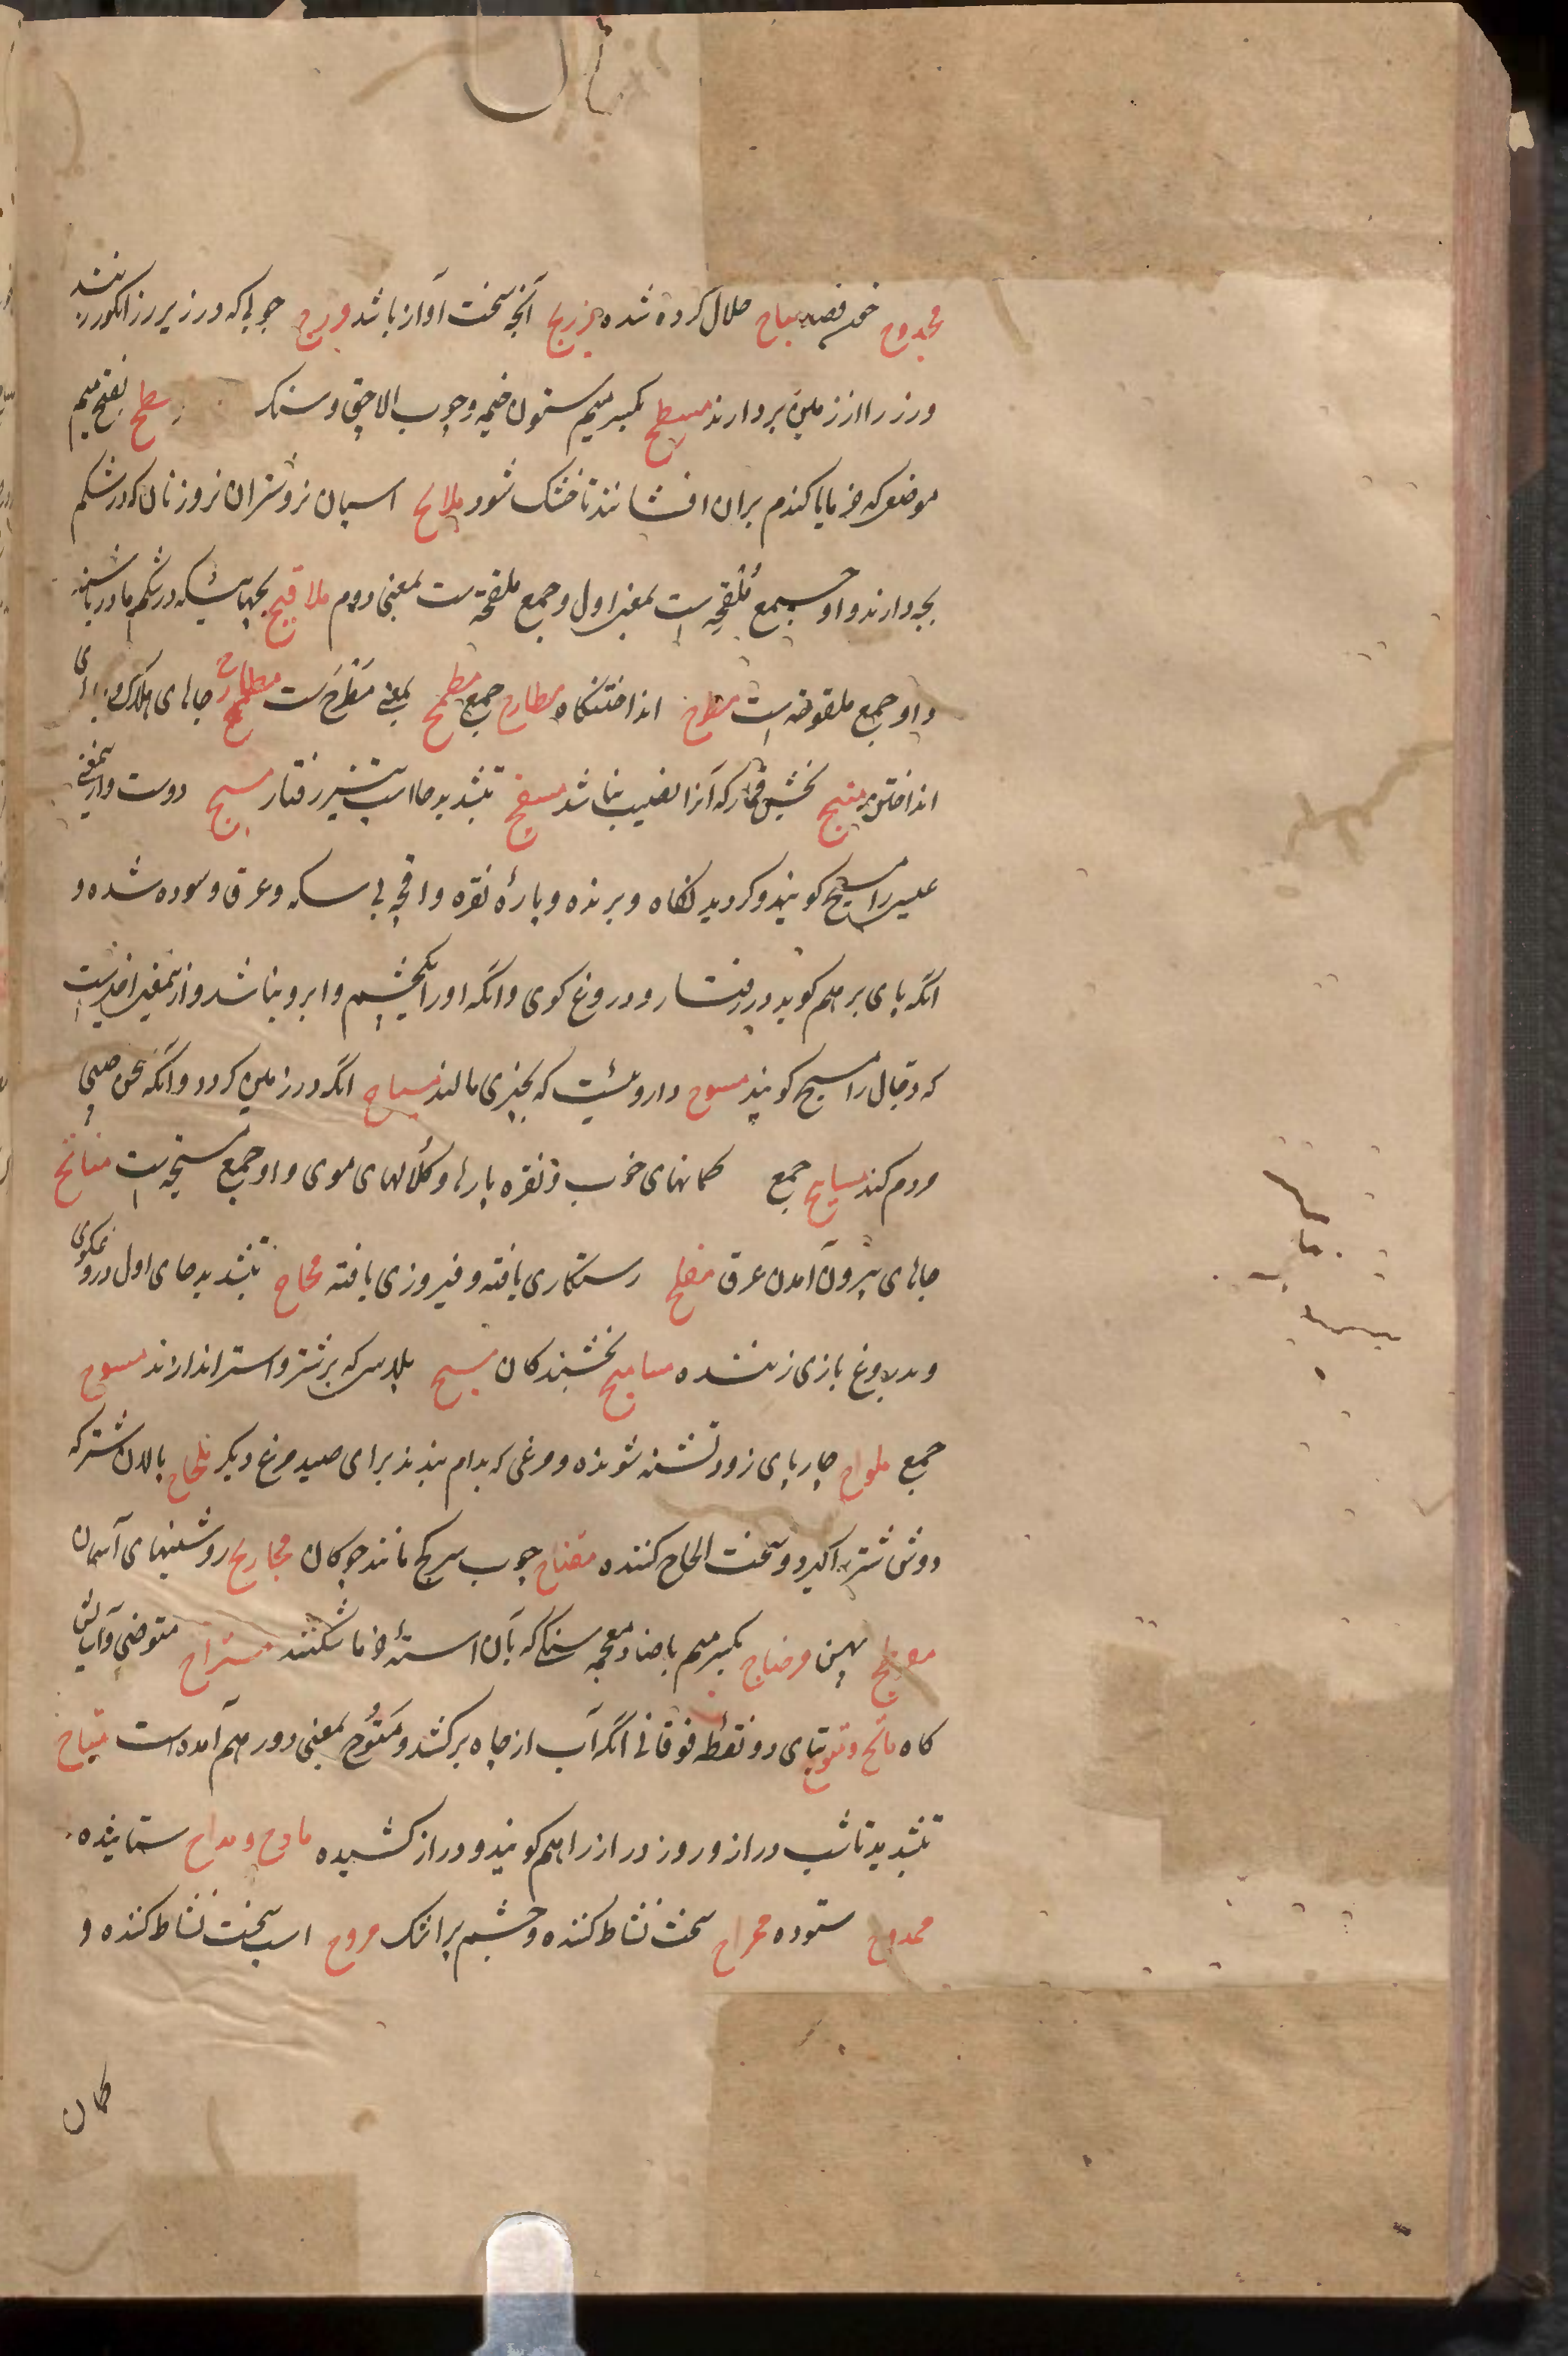 مجدوح خون فصد مباح حلال کرده شده مزرح آنچه سخت آواز باشد چوبی که در زیر رز انکور نهند
و رز را از زمین بردارند مسطح بکسر میم ستون خیمه و چوب الاچق و سنک مسطح بفتح میم
موضعی که خرما یا کندم بران افشانند تا خشک شود ملاقح اسپان نر و شتران نر و زنان که در شکم
بچه دارند و او جمع مُلقِحه است بمعنی اول و جمع ملقحة است بمعنی دوم ملاقیح بچهائیکه در شکم مادر باشند
و او جمع ملقوحه است مطرح انداختنکاه مطارح جمع مطمح بمعنی مَطرَح است مطاوح جاهای هلاک و
انداختن منیح بخشش قمار که آنرا نصیب نباشد مسح بتشدید حا اسب تیز رفتار مسیح دوست و ازینمعنی
عیسی را مسیح کویند و کردیدن کاه و برنده و پارهٔ نقره و اقچه بی سکه و عرق و سوده شده و
انکه پای بر هم کوبد در رفتار و دروغ کوی و انکه او را یکچشم و ابرو نباشد و ازینمعنی اخیر است
که دجال را مسیح کویند مسوح داروئیست که بچیزی مالند مسیاح انکه در زمین کردد و انکه سخن چینی
مردم کند مسایح جمع کمانهای خوب و نقره پارها و کلالهای موی و او جمع مسیحه است مناتح
جاهای بیرون آمدن عرق مفلح رستکاری یافته و فیروزی یافته محاح بتشدید حای اول دروغکوی
و بدروغ بازی زننده مسامیح بخشندکان مسح پلاس که بر شتر و استر اندازند مسوح
جمع ملواح چارپای زود تشنه شونده و مرغی که بدام بندند برای صید مرغ دیکر ملحاح پالان شتر که
دوش شتر را کیرد و سخت الحاح کننده مقناح چوب سرکج مانند چوکان مجاریح روشنیهای آسمان
پهن مرضاح بکسر میم با ضاد معجمه سنکی که بآن استهٔ خرما شکنند مستراح متوضی و آسایش
کاه ماتح و متوح بتای دو نقطه فوقانی انکه آب از چاه برکشد و مَتُوح بمعنی دور هم آمده است متاح
بتشدید تا شب دراز و روز دراز را هم کویند و دراز کشیده مادح و مداح ستاینده
ممدوح ستوده ممراح سخت نشاط کننده و چشم پر اشک مروح اسب سخت نشاط کننده و
کمان